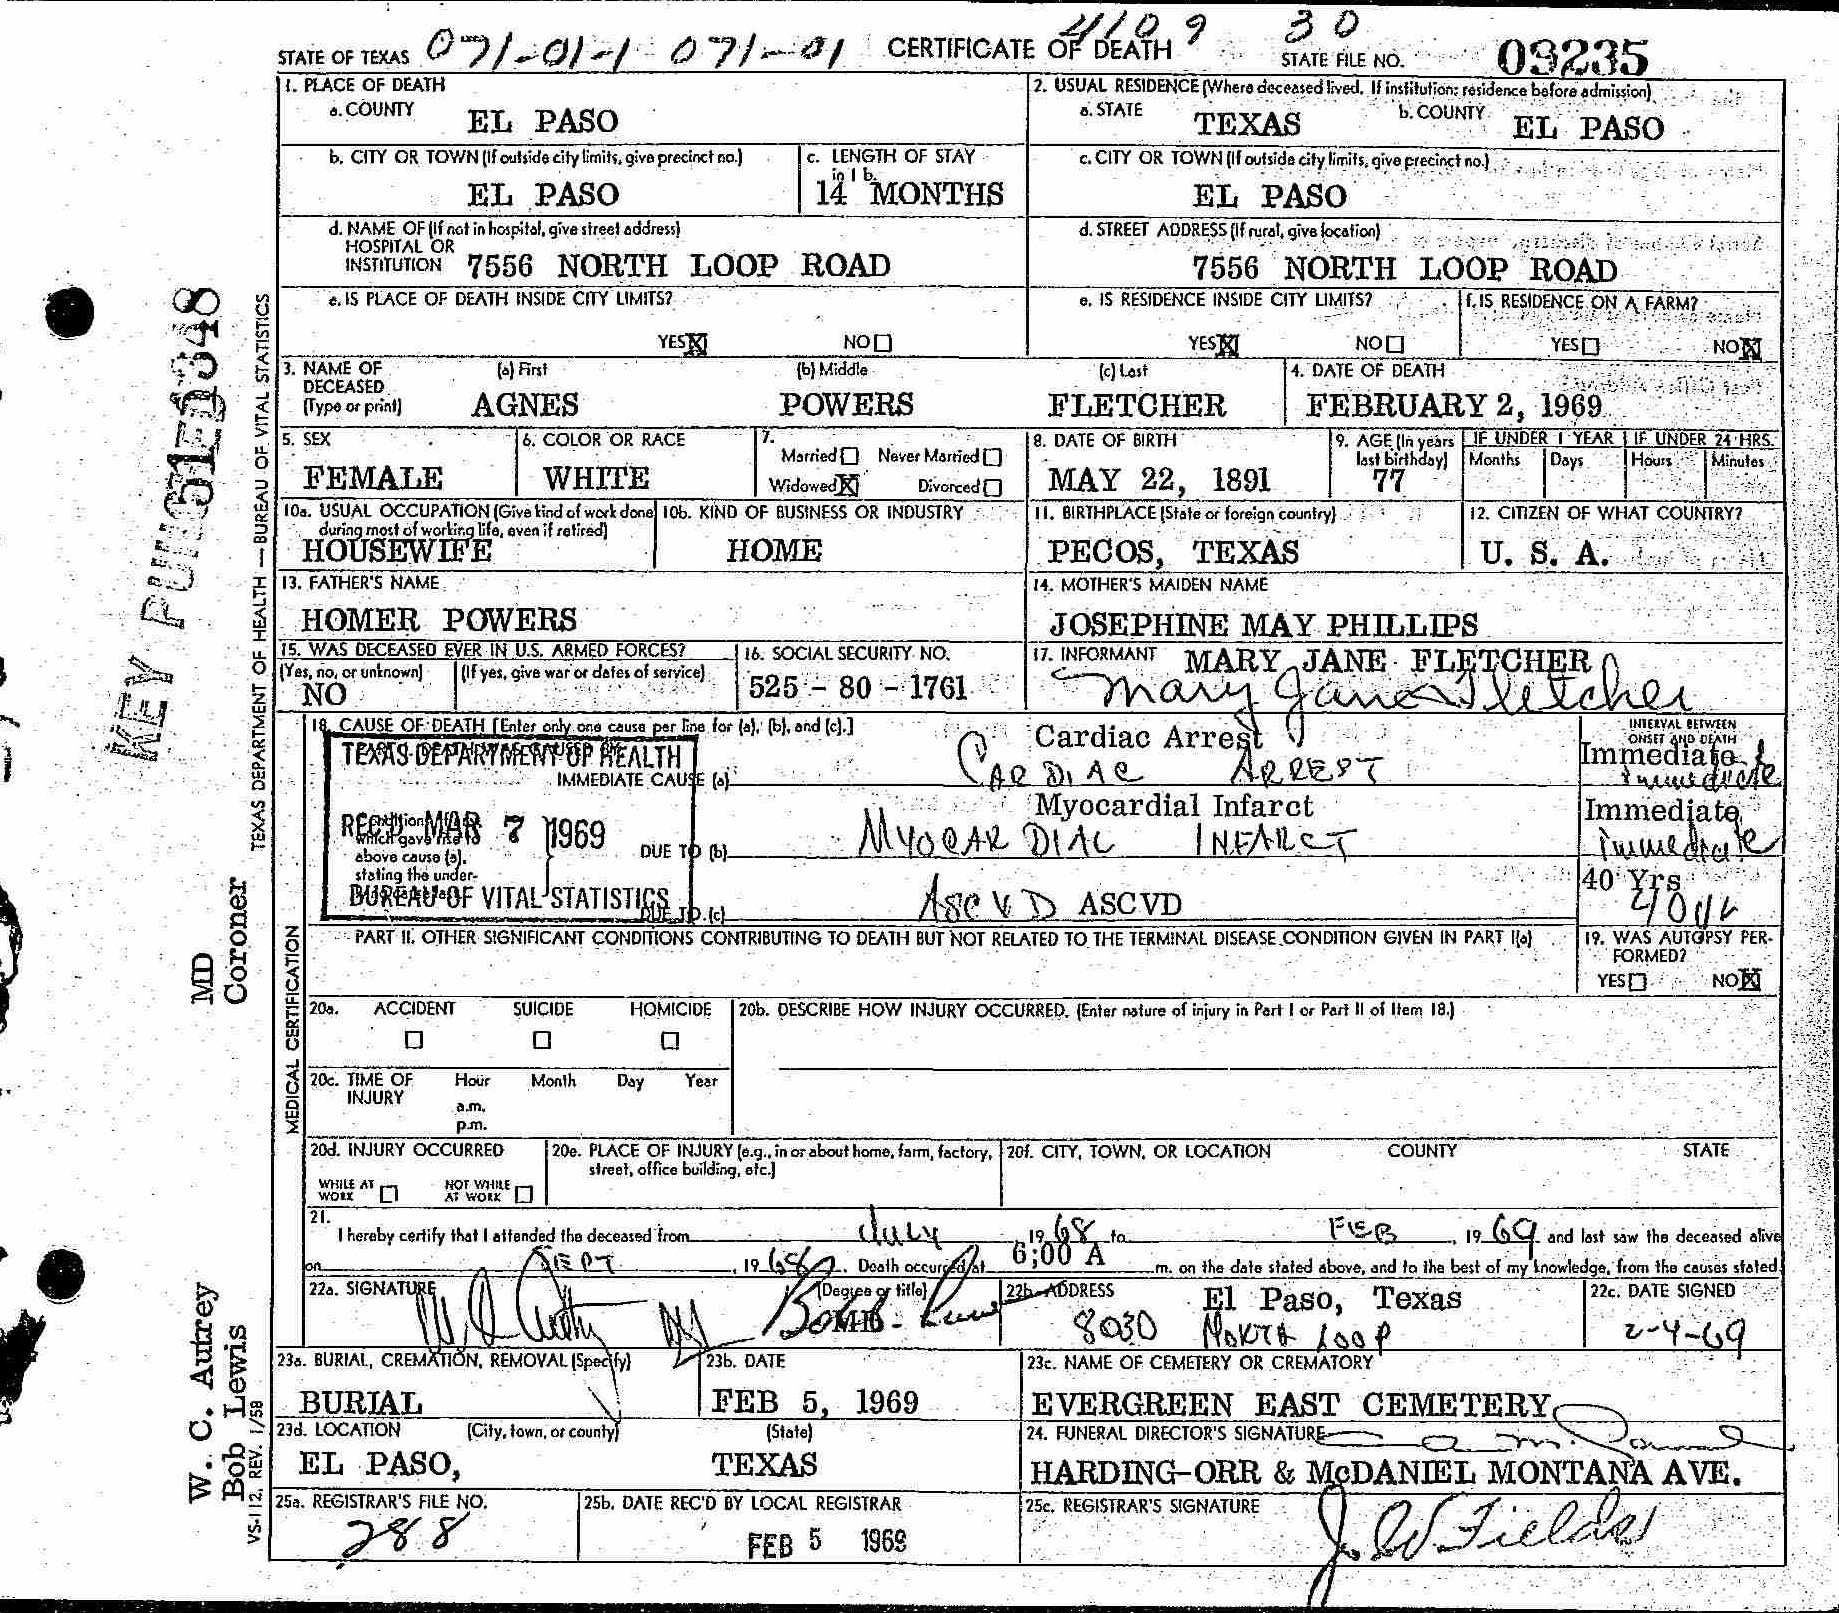 4109 30
STATE OF TEXAS 071-01-1 071-01 CERTIFICATE OF DEATH STATE FILE NO. 09235
1. PLACE OF DEATH
a. COUNTY
EL PASO
2. USUAL RESIDENCE (Where deceased lived. If institution: residence before admission)
a. STATE TEXAS b. COUNTY EL PASO
b. CITY OR TOWN (If outside city limits, give precinct no.)
EL PASO
c. LENGTH OF STAY
in 1 b.
14 MONTHS
c. CITY OR TOWN (If outside city limits, give precinct no.)
EL PASO
d. NAME OF (If not in hospital, give street address)
HOSPITAL OR
INSTITUTION 7556 NORTH LOOP ROAD
d. STREET ADDRESS (If rural, give location)
7556 NORTH LOOP ROAD
e. IS PLACE OF DEATH INSIDE CITY LIMITS?
YES NO
e. IS RESIDENCE INSIDE CITY LIMITS?
YES NO
f. IS RESIDENCE ON A FARM?
YES NO
3. NAME OF
DECEASED
(Type or print)
(a) First (b) Middle (c) Last
AGNES POWERS FLETCHER
4. DATE OF DEATH
FEBRUARY 2, 1969
5. SEX
FEMALE
6. COLOR OR RACE
WHITE
7.
Married Never Married
Widowed Divorced
8. DATE OF BIRTH
MAY 22, 1891
9. AGE (In years
last birthday)
77
IF UNDER 1 YEAR IF UNDER 24 HRS.
Months Days Hours Minutes
10a. USUAL OCCUPATION (Give kind of work done
during most of working life, even if retired)
HOUSEWIFE
10b. KIND OF BUSINESS OR INDUSTRY
HOME
11. BIRTHPLACE (State or foreign country)
PECOS, TEXAS
12. CITIZEN OF WHAT COUNTRY?
U. S. A.
13. FATHER'S NAME
HOMER POWERS
14. MOTHER'S MAIDEN NAME
JOSEPHINE MAY PHILLIPS
15. WAS DECEASED EVER IN U.S. ARMED FORCES?
(Yes, no, or unknown) (If yes, give war or dates of service)
NO
16. SOCIAL SECURITY NO.
525 - 80 - 1761
17. INFORMANT MARY JANE FLETCHER
Mary Jane Fletcher
18. CAUSE OF DEATH [Enter only one cause per line for (a), (b), and (c).]
INTERVAL BETWEEN
ONSET AND DEATH
TEXAS DEPARTMENT OF HEALTH
REC'D MAR 7 1969
BUREAU OF VITAL STATISTICS
IMMEDIATE CAUSE (a)
Cardiac Arrest
CARDIAC ARREST
Immediate
immediate
which gave rise to
above cause (a),
stating the under-
DUE TO (b)
Myocardial Infarct
MYOCARDIAL INFARCT
Immediate
immediate
DUE TO (c)
ASCVD ASCVD
40 Yrs
PART II. OTHER SIGNIFICANT CONDITIONS CONTRIBUTING TO DEATH BUT NOT RELATED TO THE TERMINAL DISEASE CONDITION GIVEN IN PART I(a)
19. WAS AUTOPSY PER-
FORMED?
YES NO
20a. ACCIDENT SUICIDE HOMICIDE
20b. DESCRIBE HOW INJURY OCCURRED. (Enter nature of injury in Part I or Part II of Item 18.)
20c. TIME OF
INJURY
Hour Month Day Year
a.m.
p.m.
20d. INJURY OCCURRED
WHILE AT
WORK
NOT WHILE
AT WORK
20e. PLACE OF INJURY (e.g., in or about home, farm, factory,
street, office building, etc.)
20f. CITY, TOWN, OR LOCATION COUNTY STATE
21.
I hereby certify that I attended the deceased from July, 1968 to FEB, 1969 and last saw the deceased alive
on SEPT, 1968. Death occurred at 6:00 A m. on the date stated above, and to the best of my knowledge, from the causes stated.
22a. SIGNATURE (Degree or title)
22b. ADDRESS
El Paso, Texas
8030 NORTH LOOP
22c. DATE SIGNED
2-4-69
23a. BURIAL, CREMATION, REMOVAL (Specify)
BURIAL
23b. DATE
FEB 5, 1969
23c. NAME OF CEMETERY OR CREMATORY
EVERGREEN EAST CEMETERY
23d. LOCATION (City, town, or county) (State)
EL PASO, TEXAS
24. FUNERAL DIRECTOR'S SIGNATURE
HARDING-ORR & McDANIEL MONTANA AVE.
25a. REGISTRAR'S FILE NO.
288
25b. DATE REC'D BY LOCAL REGISTRAR
FEB 5 1969
25c. REGISTRAR'S SIGNATURE
J. W. Fields
KEY PUNCHED
TEXAS DEPARTMENT OF HEALTH — BUREAU OF VITAL STATISTICS
MEDICAL CERTIFICATION
W. C. Autrey MD
Bob Lewis Coroner
VS-112, REV. 1/58